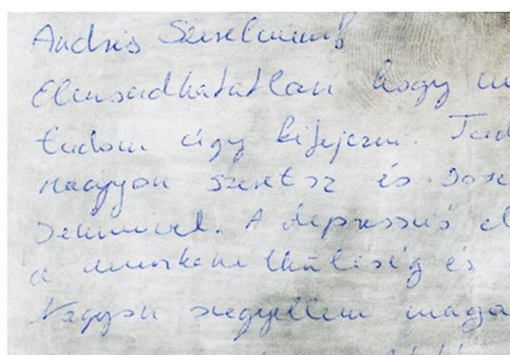 Andris Szerelmem
Elmondhatatlan hogy m
tudom úgy kifejezni. Tud
nagyon szeretsz és sose
semmivel. A depressió el
a munkanélküliség és
Nagyon szegyellem maga